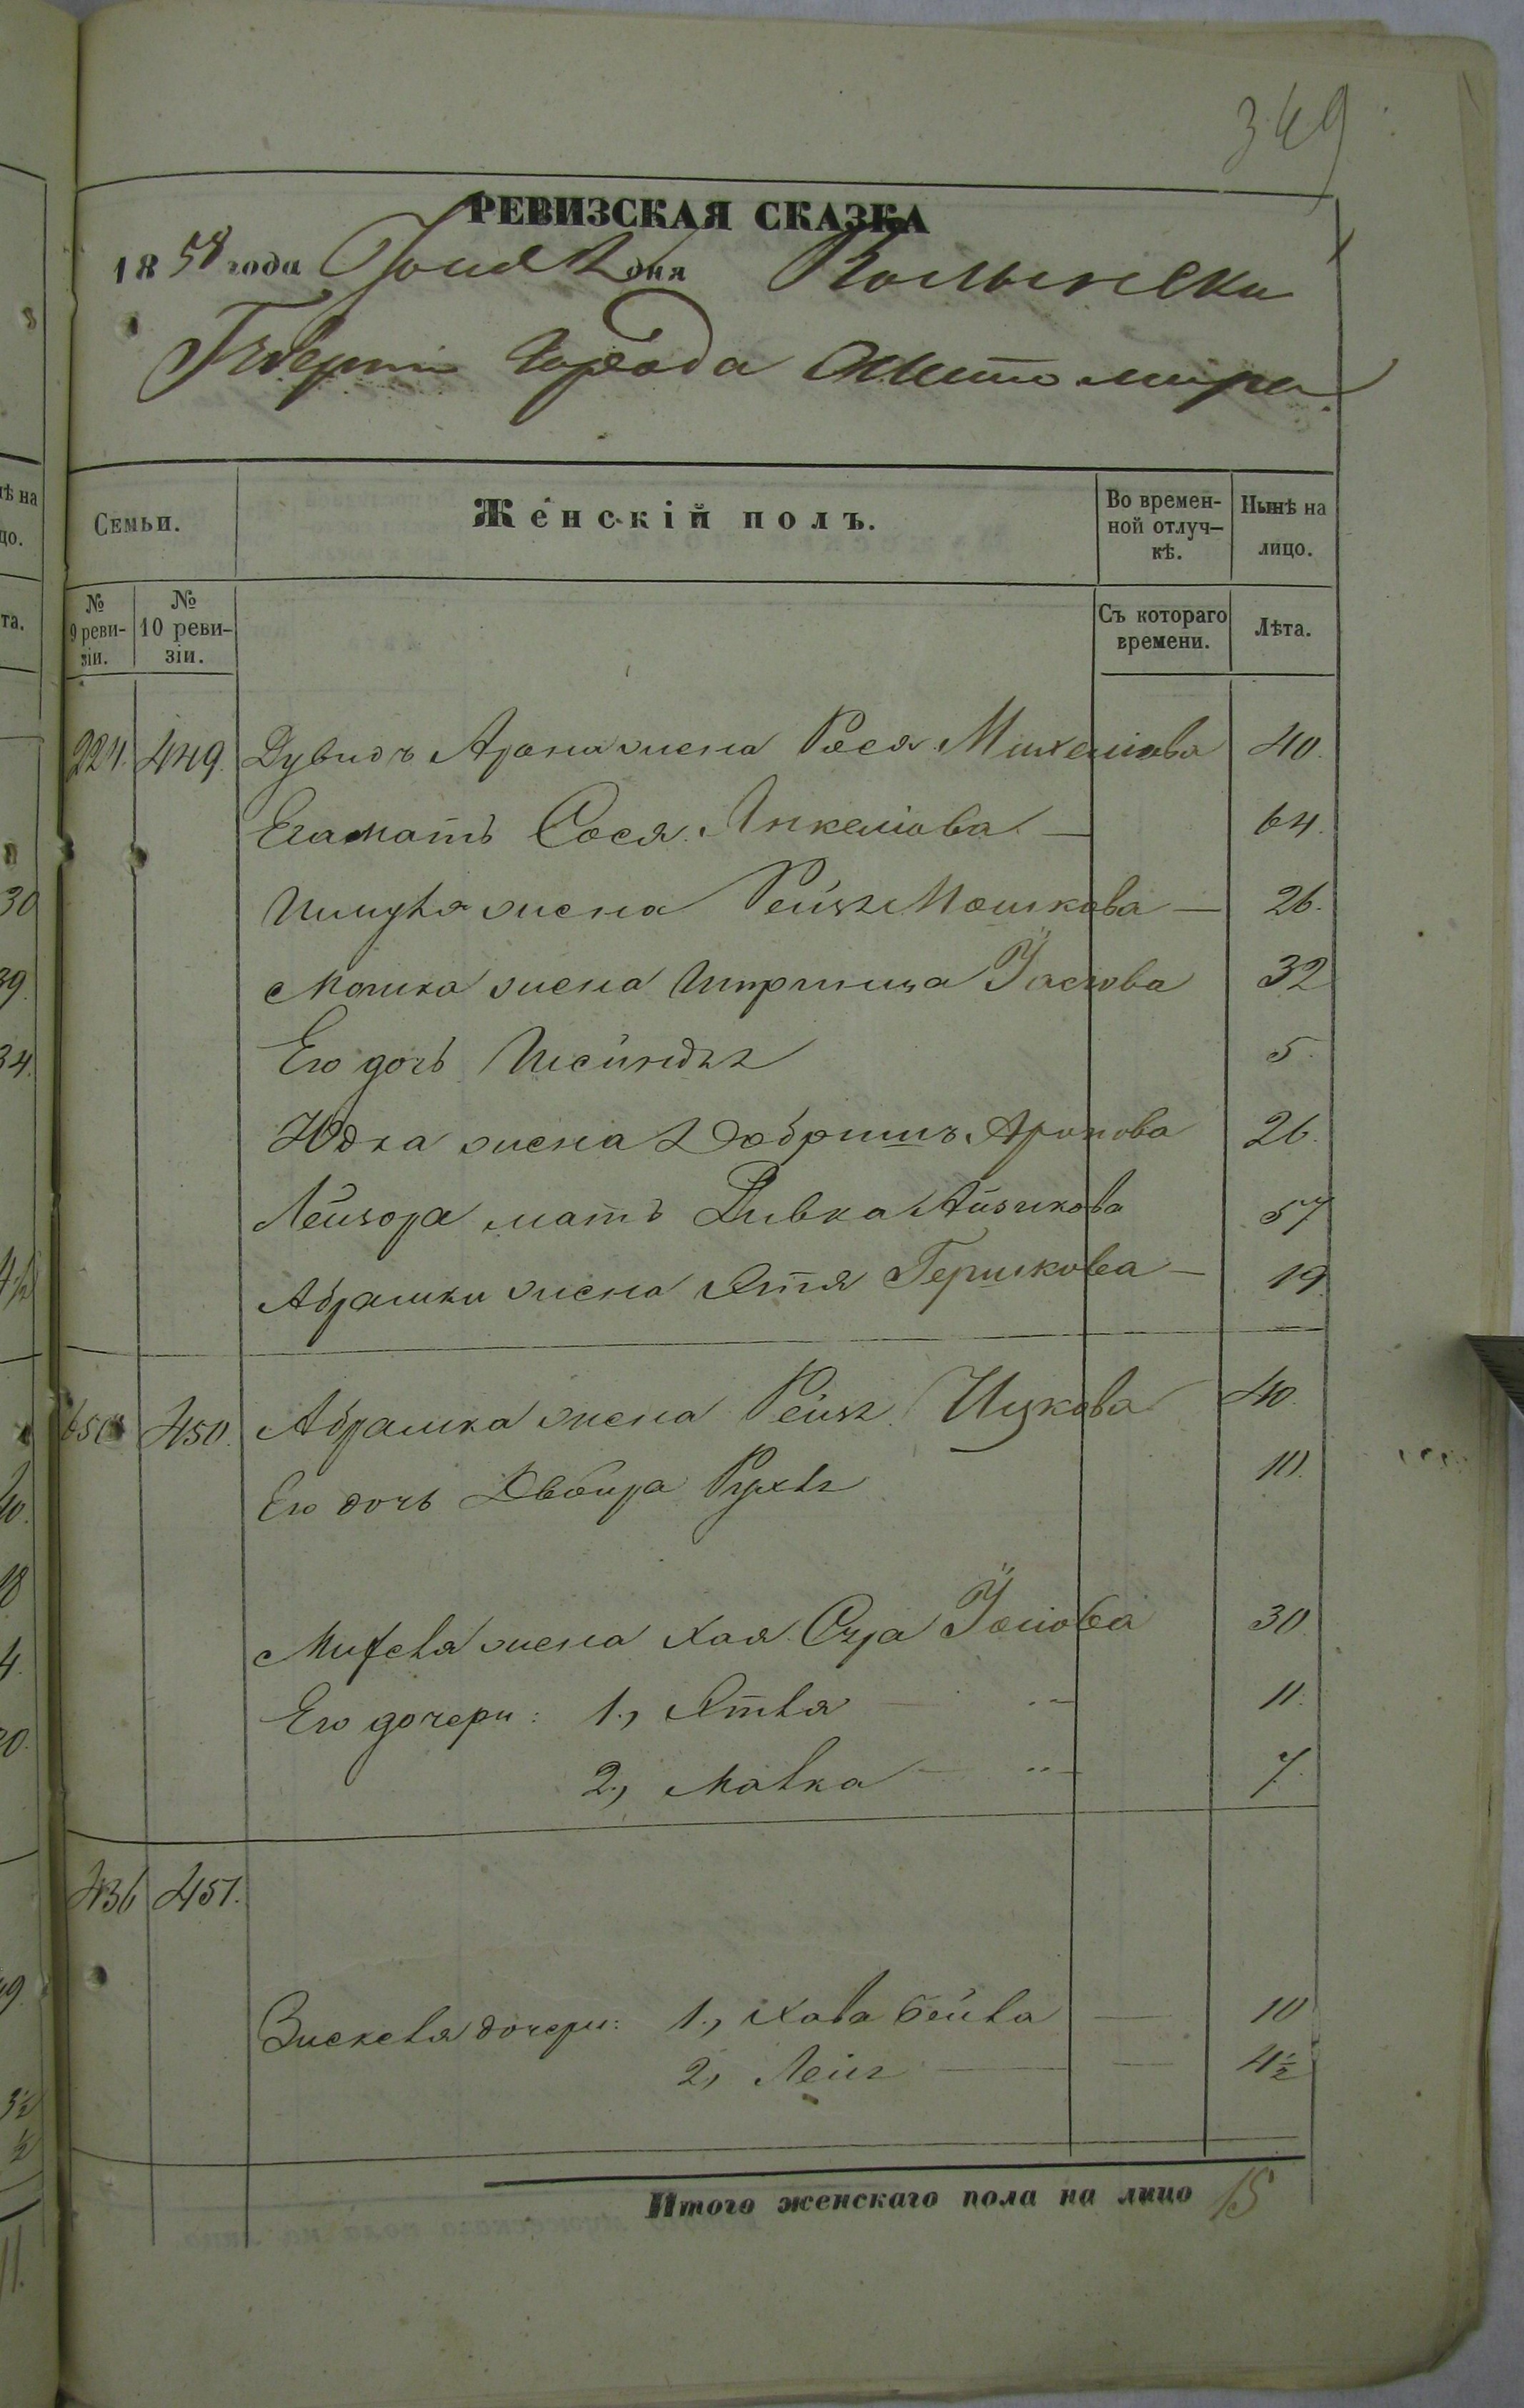 349
РЕВИЗСКАЯ СКАЗКА
1858 года Іюня 2 дня Волынской
Губерніи города Житомира.
Семьи. Женскій полъ. Во временной отлучкѣ. Нынѣ на лицо.
№ 9 ревизіи. № 10 ревизіи. Съ котораго времени. Лѣта.
224. 449. Дувидъ Арона жена Рося 40.
Его мать Сося Янкелiова — 64.
жена Рейзя Мошкова — 26.
Мошка жена Іосіова 32
Его дочь Шейндля 5.
Юдка жена Добришъ Аронова 26.
Лейзора мать Ривка Айзикова 57
Абрамки женаЭтя Гершкова — 19
450. Абрамка жена Рейзя Ицкова 40.
Его дочь Двойра Рухля 10.
жена Хая Сура Іосіова 30.
Его дочери: 1., Этля 11.
2., Малка 7.
436 451.
дочери: 1., Хава Бейла — 10
2, Леія — 4½
Итого женскаго пола на лицо 15